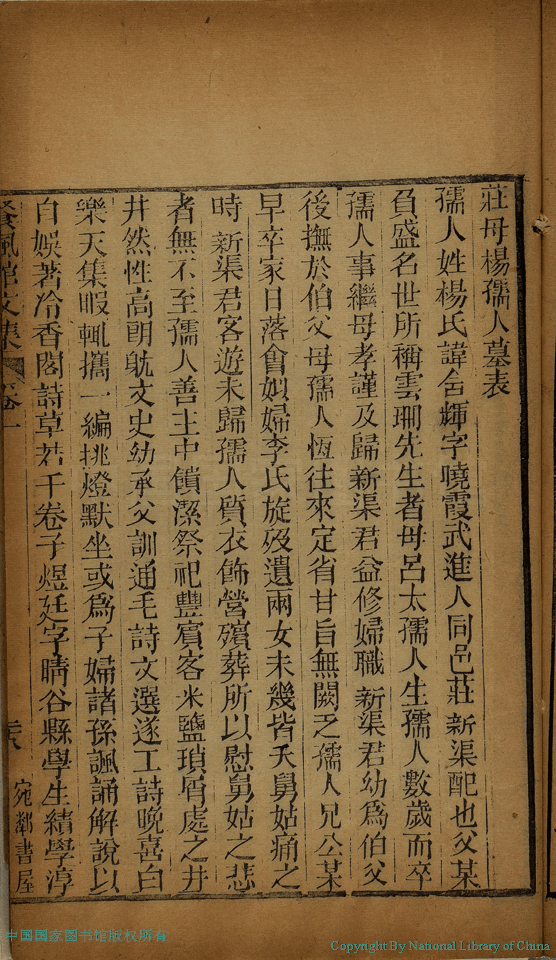 莊母楊孺人墓表
孺人姓楊氏諱含輝字曉霞武進人同邑莊 新渠配也父某
負盛名世所稱雲珊先生者母呂太孺人生孺人數歲而卒
孺人事繼母孝謹及歸新渠君益修婦職 新渠君幼爲伯父
後撫於伯父母孺人恆往來定省甘旨無闕乏孺人兄公某
早卒家日落會姒婦李氏旋歿遺兩女未幾皆夭舅姑痛之
時 新渠君客遊未歸孺人質衣飾營殯葬所以慰舅姑之悲
者無不至孺人善主中饋潔祭祀豐賓客米鹽瑣屑處之井
井然性高朗躭文史幼承父訓通毛詩文選遂工詩晚喜白
樂天集暇輒攜一編挑燈默坐或爲子婦諸孫諷誦解說以
自娛著冷香閣詩草若干卷子煜廷字晴谷縣學生績學淳
餐楓館文集 卷一 二八 宛鄰書屋
中国国家图书馆版权所有
Copyright By National Library of China